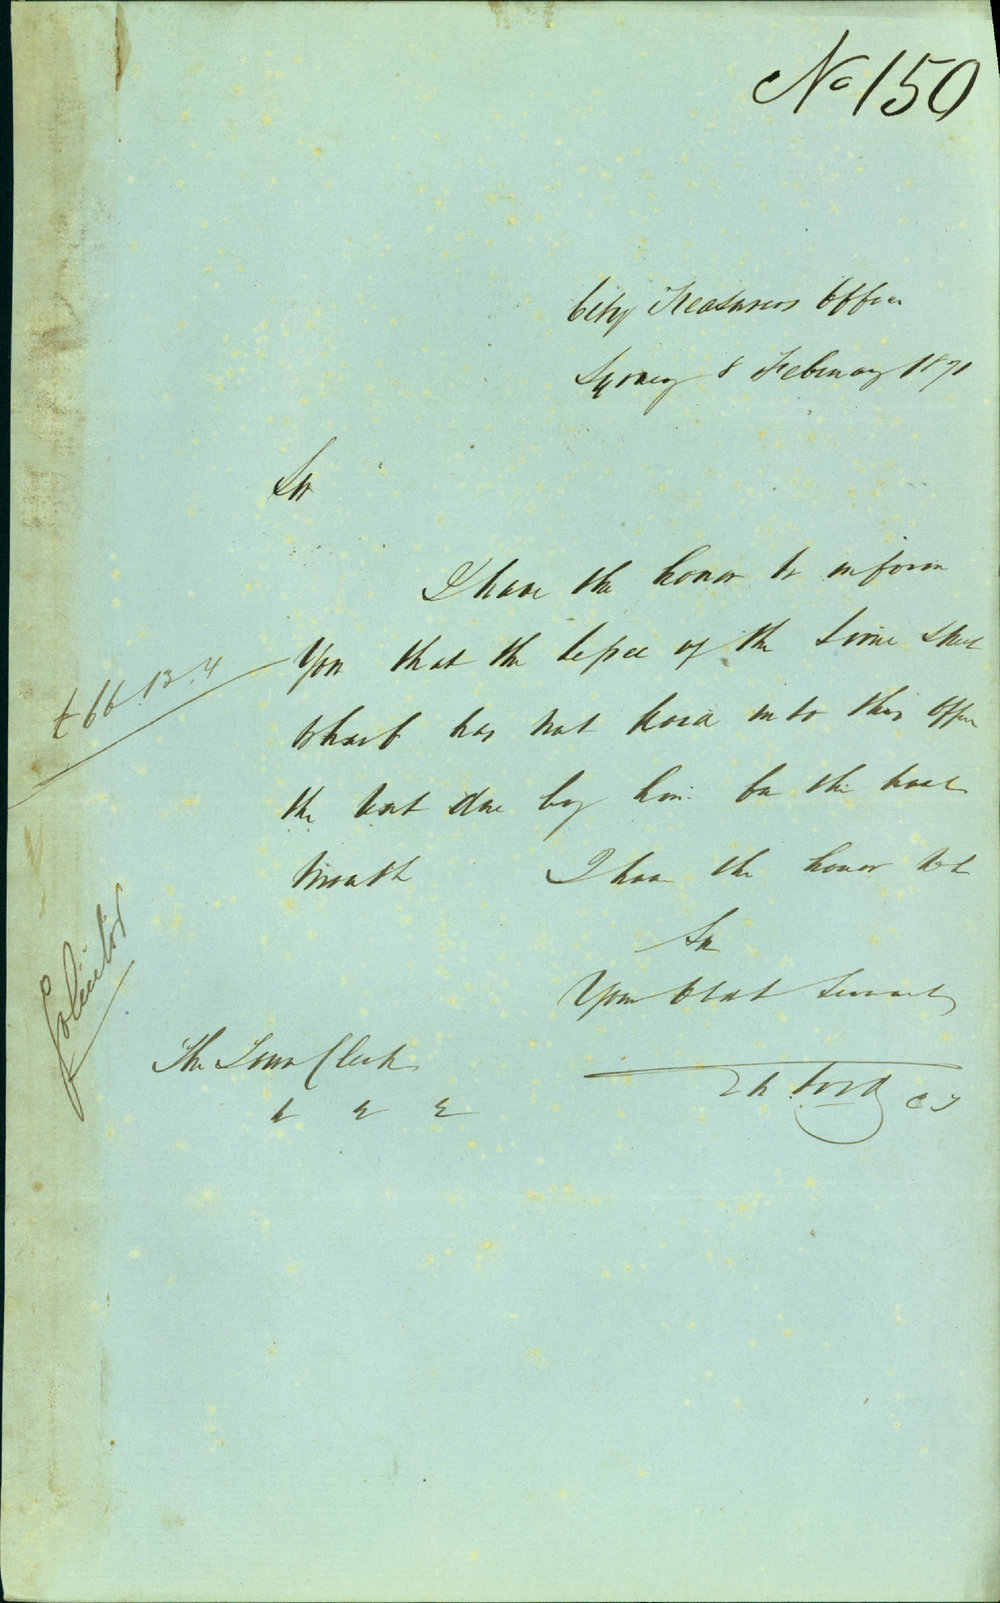 No 150
City Treasurers Office
Sydney 8 February 1871
Sir
I have the honor to inform
You that the Lessee of the Lime Street
Wharf has not paid into this Office
the Rent due by him for the past
Month I have the honor to be
Sir
Your Obdt Servant
The Town Clerk
Ford CT
£66.13.4
Solicitor